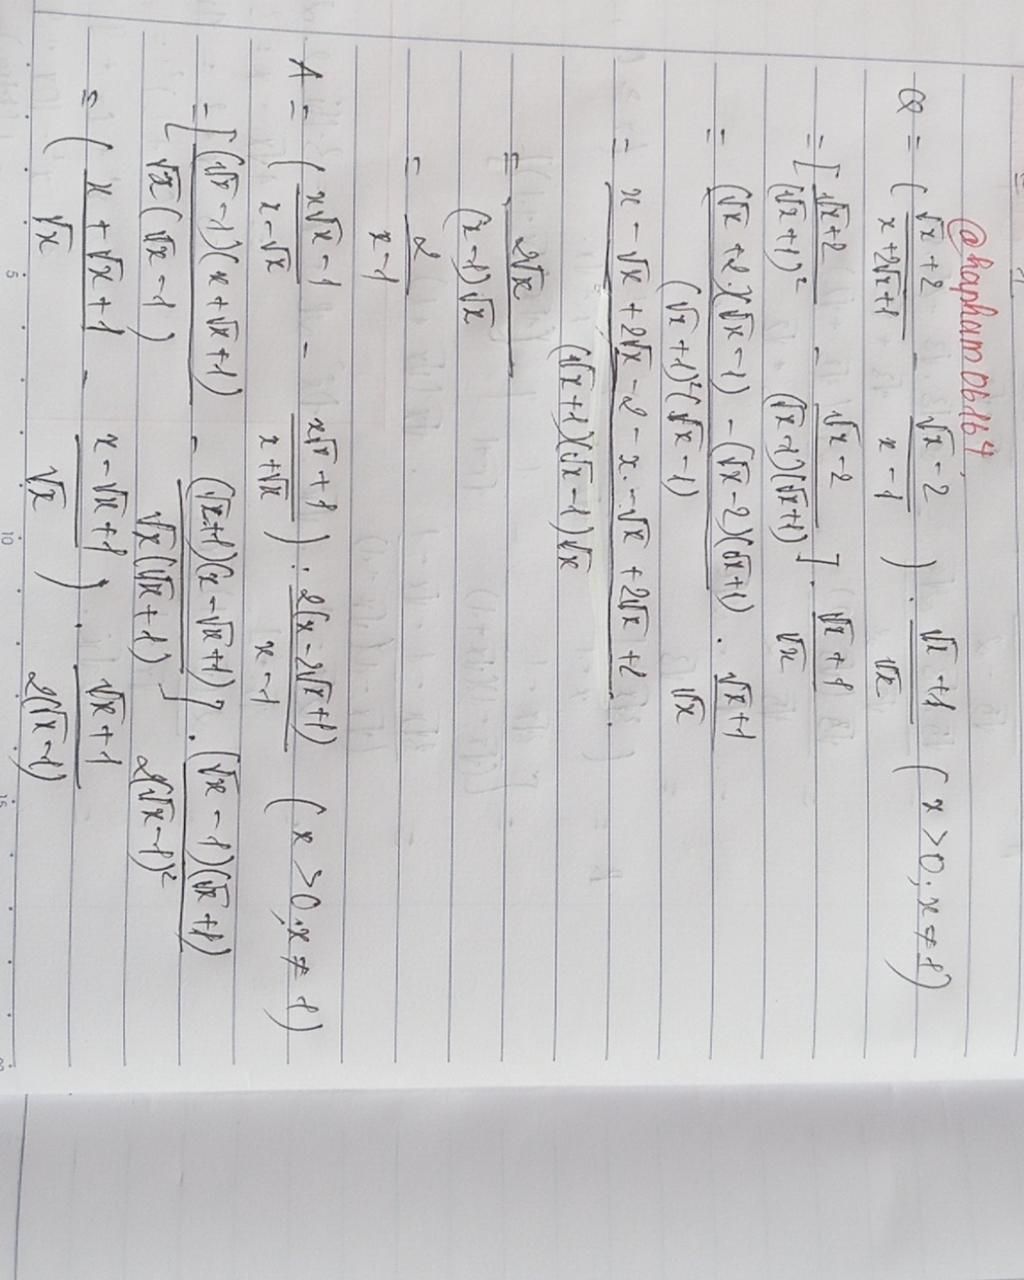 @hapham06164
Q = ( (√x + 2)/(x + 2√x + 1) - (√x - 2)/(x - 1) ) . (√x + 1)/√x ( x > 0; x ≠ 1)
= [ (√x + 2)/(√x + 1)² - (√x - 2)/((√x - 1)(√x + 1)) ] . (√x + 1)/√x
= ((√x + 2)(√x - 1) - (√x - 2)(√x + 1))/((√x + 1)²(√x - 1)) . (√x + 1)/√x
= (x - √x + 2√x - 2 - x - √x + 2√x + 2)/((√x + 1)(√x - 1)√x) .
= 2√x/((x - 1)√x)
= 2/(x - 1)
A = ( (x√x - 1)/(x - √x) - (x√x + 1)/(x + √x) ) : 2(x - 2√x + 1)/(x - 1) ( x > 0; x ≠ 1)
= [ (√x - 1)(x + √x + 1)/(√x(√x - 1)) - (√x + 1)(x - √x + 1)/(√x(√x + 1)) ] . (√x - 1)(√x + 1)/(2(√x - 1)²)
= ( (x + √x + 1)/√x - (x - √x + 1)/√x ) . (√x + 1)/(2(√x - 1))
5
10
15